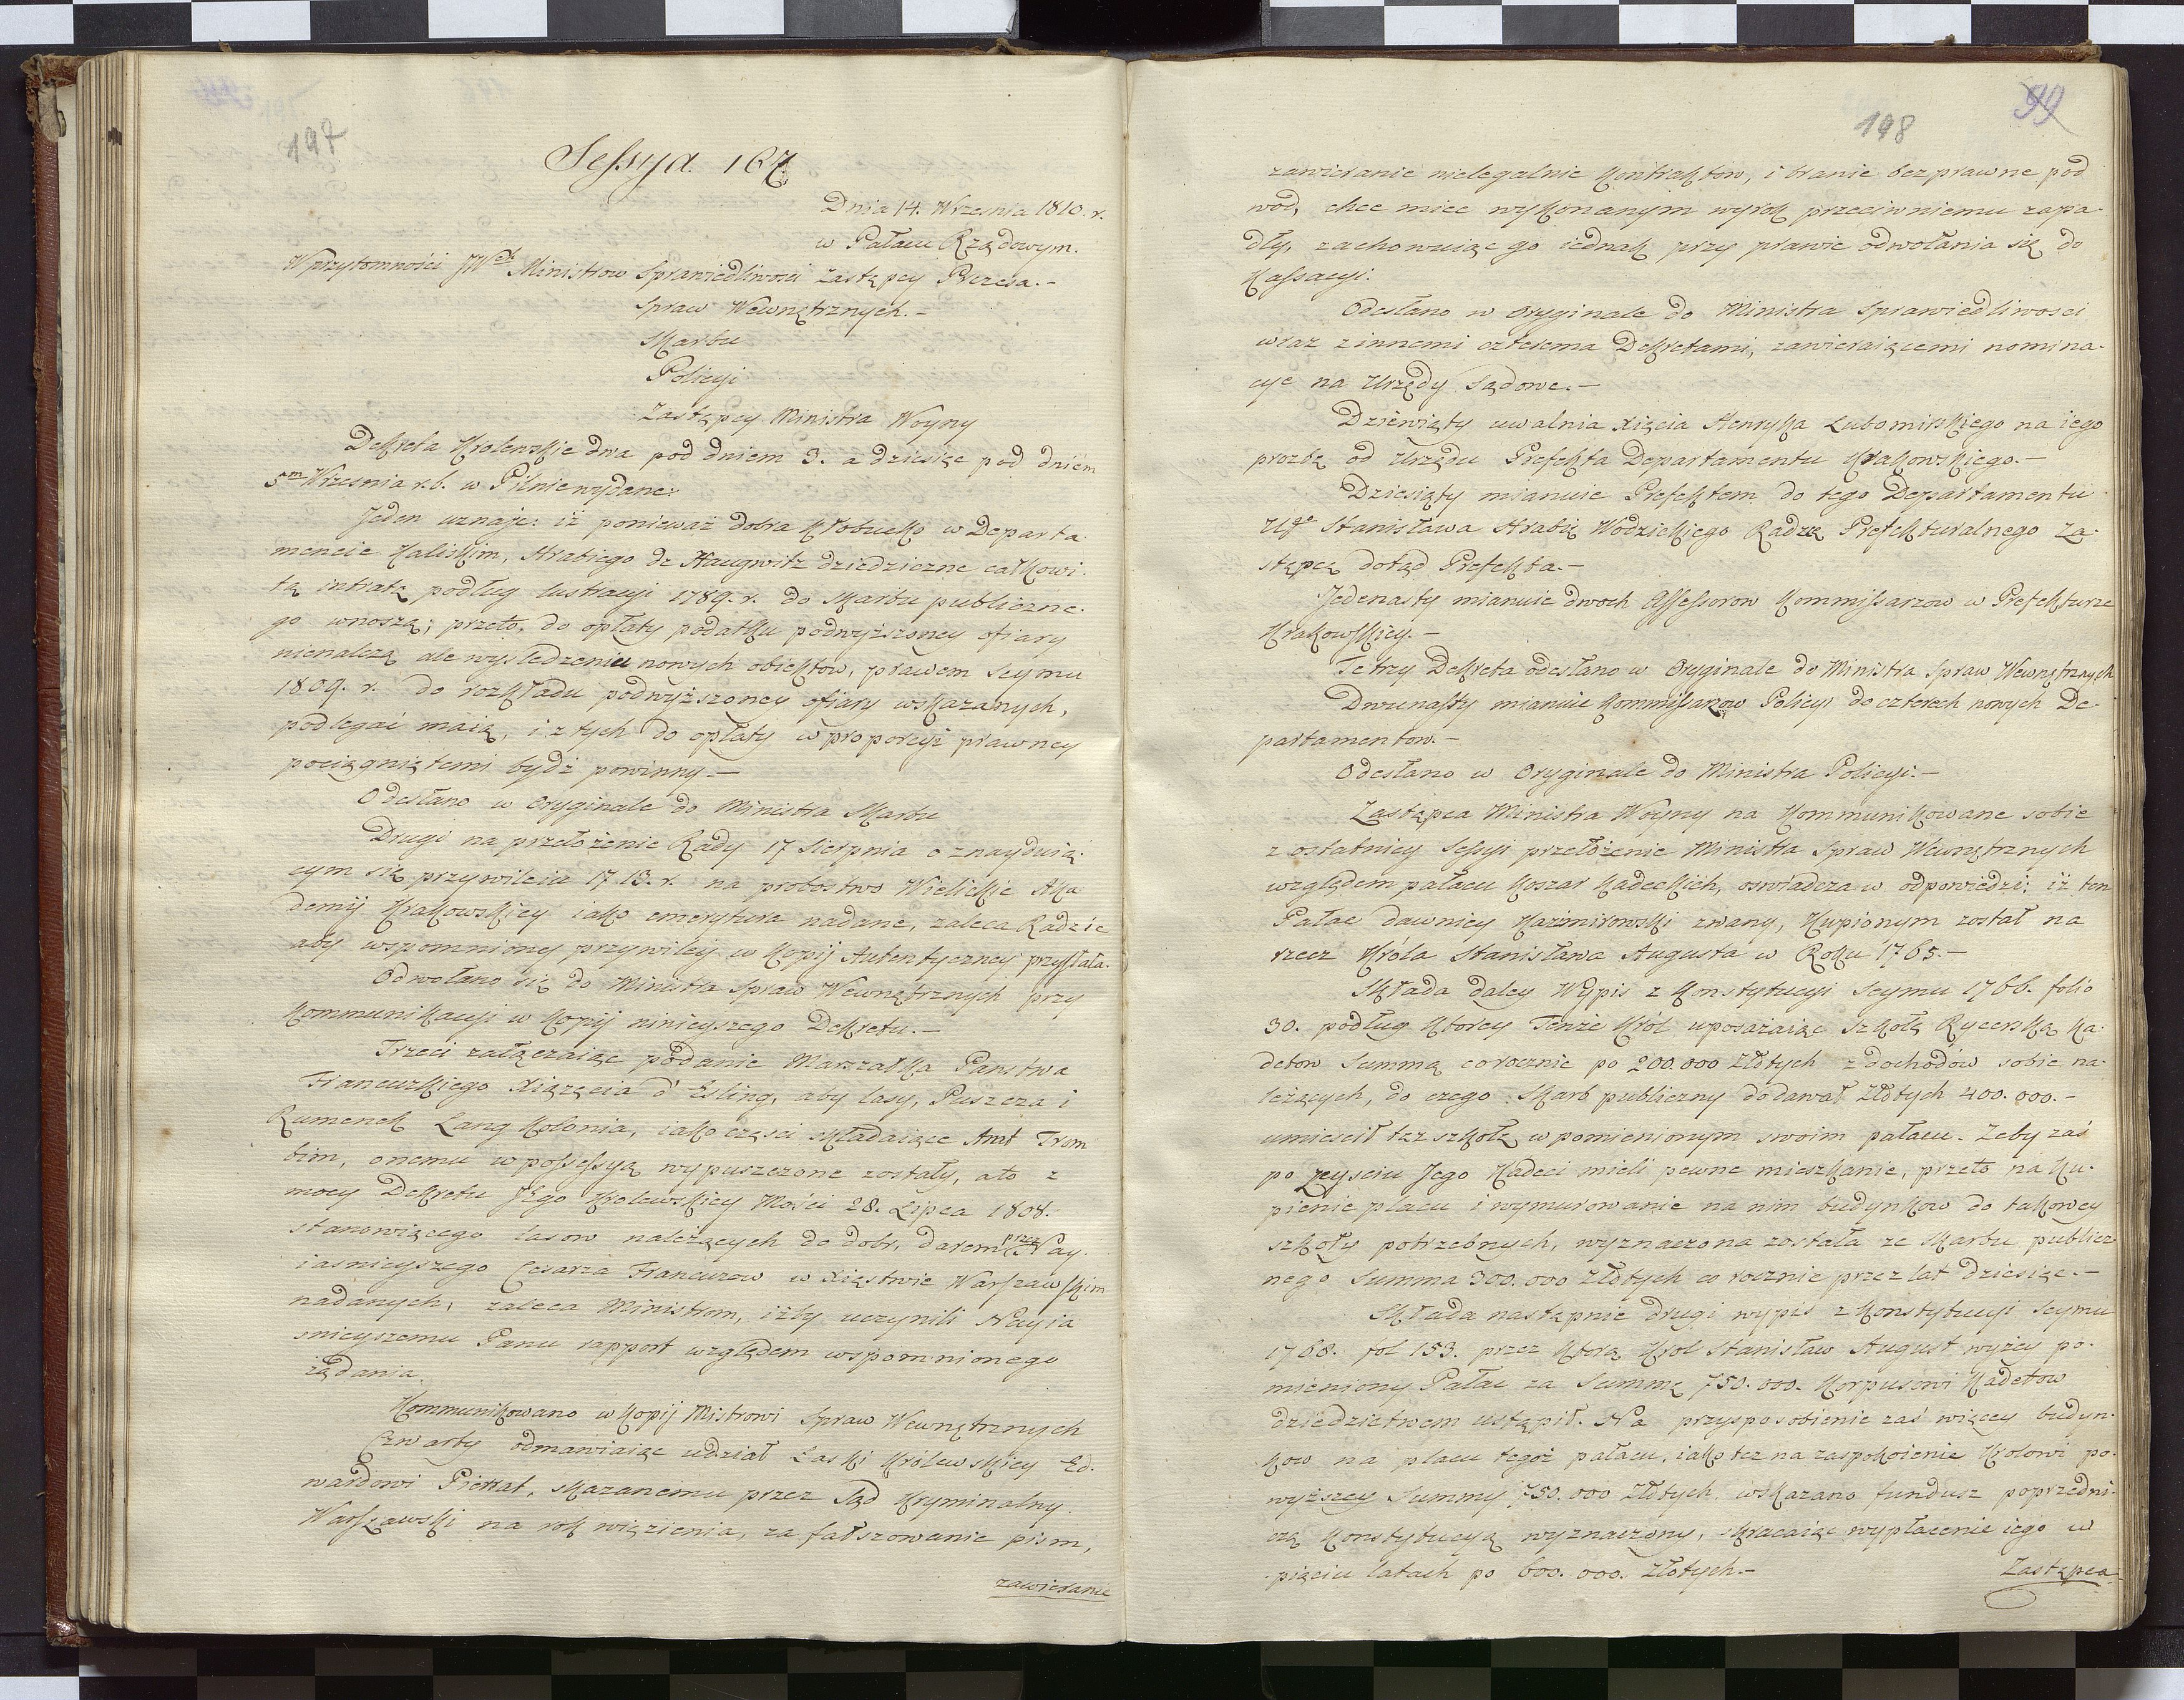 197
Sessya. 167.
Dnia 14. Wrzesnia 1810. r.
w Pałacu Rządowym.
W przytomności JW<sup>ch</sup> Ministrow Sprawiedliwosci Zastępcy Prezesa.-
Spraw Wewnętrznych.-
Skarbu
Policyi
Zastępcy Ministra Woyny
Dekreta Krolewskie dwa pod dniem 3. a dziesięc pod dniem
5<sup>m</sup> Wrzesnia r.b. w Pilnie wydane:
Jeden uznaje: iż ponieważ dobra Kłobucko w Departa
mencie Kaliskim, Hrabiego de Haugwitz dziedziczne całkowi.
tą intratę podług lustracyi 1789. r. do Skarbu publiczne.
go wnoszą; przeto. do opłaty podatku podwyższoney ofiary
nienależą ale wysledzeniu nowych obiektow, prawem Seymu
1809. r. do rozkładu podwyższoney ofiary wskazanych,
podlegać maią, i z tych do opłaty w proporcyi prawney
pociągniętemi bydź powinny.-
Odesłano w Oryginale do Ministra Skarbu
Drugi na przełożenie Rady 17 Sierpnia o znayduią
cym się przywileia 1713. r. na probostwo Wielickie Aka
demij Krakowskiey iako emerytura nadane, zaleca Radzie
aby wspomnioney przywiley w Kopij Autentyczney przysłała.
Odwołano się do Ministra Spraw Wewnętrznych przy
Kommunikacyi w Kopij ninieyszego Dekretu.-
Trzeci załączaiąc podanie Marszałka Panstwa
Francuzkiego Xiążęcia d'Esling, aby lasy, Puszcza i
Rumenek Lang Kolonia, iako częsci składaiące Amt Trom
bim, onemu w possessyą wypuszczone zostały, a to z
mocy Dekretu JKgo Krolewskiey Mości 28. Lipca 1808.
stanowiącego lasow należących do dobr, darem przez Nay.
iasnieyszego Cesarza Francuzow w Xięstwie Warszawskim
nadanych, zaleca Ministrom, iżby uczynili Nayia
snieyszemu Panu rapport względem wspomnionego
żądania.
Kommunikowano w Kopij Mistrowi Spraw Wewnętrznych
Czwarty odmawiaiąc udział Łaski Królewskiey Ed.
wardowi Pierrat, skazanemu przez Sąd Kryminalny
Warszawski na rok więzienia, za fałszowanie pism,
zawieranie
198
99
zawieranie nielegalnie Kontraktow, i branie bezprawne pod
wod, chce miec wykonanym wyrok przeciw niemu zapa.
dły, zachowuiąc go iednak przy prawie odwołania się do
Kassacyi.
Odesłano w Oryginale do Ministra Sprawiedliwosci
wraz z innemi czterema Dekretami, zawieraiącemi nomina.
cye na Urzędy Sądowe.-
Dziewiąty uwalnia Xięcia Henryka Lubomirskiego na iego
prozbę od Urzędu Prefekta Departamentu Krakowskiego.-
Dziesiąty mianuie Prefektem do tego Departamentu
Ugo Stanisława Hrabię Wodzickiego Radzcę Prefekturalnego Za.
stępcę dotąd Prefekta.-
Jedenasty mianuie dwoch Assessorow Kommissarzow w Prefekturze
Krakowskiey.-
Te trzy Dekreta odesłano w Oryginale do Ministra Spraw Wewnętrznych
Dwunasty mianuie Kommissarzow Policyi do czterech nowych De.
partamentow.-
Odesłano w Oryginale do Ministra Policyi.-
Zastępca Ministra Woyny na Kommunikowane sobie
z ostatniey Sessyi przełożenie Ministra Spraw Wewnętrznych
względem pałacu Koszar Kadeckich, oswiadcza w odpowiedzi; iż ten
Pałac dawniey Kazimirowski zwany, Kupionym został na
rzecz Króla Stanisława Augusta w Roku 1765.-
Składa daley Wypis z Konstytucyi Seymu 1766. folio
30. podług Ktorey Tenże Król uposażaiąc szkołę Rycerską Ka.
detow Summą corocznie po 200.000 Złotych z dochodów sobie na.
leżących, do czego Skarb publiczny dodawał Złotych 400.000.-
umiescił tez szkołę w pomienionym swoim pałacu. Żeby zaś
po zeysciu Jego Kadeci mieli pewne mieszkanie, przeto na ku.
pienie placu i wymurowanie na nim budynkow do takowey
szkoły potrzebnych, wyznaczona została ze Skarbu publicz
nego Summa 300.000 Złotych co rocznie przez lat dziesięc.-
Składa następnie drugi wypis z Konstytucyi Seymu
1768. fol 153. przez Ktorą Krol Stanisław August wyżey po.
mieniony Pałac za Summę 750.000. Korpusowi Kadetow
dziedzictwem ustąpił. Na przysposobienie zaś więcey budyn.
kow na placu tegoż pałacu, iako też na zaspokoienie Krolowi po.
wyższey Summy 750.000 Złotych, wskazano fundusz poprzedni.
czą Konstytucyą wyznaczony, skracaiąc wypłacenie iego w
pięciu latach po 600.000. Złotych.-
Zastępca